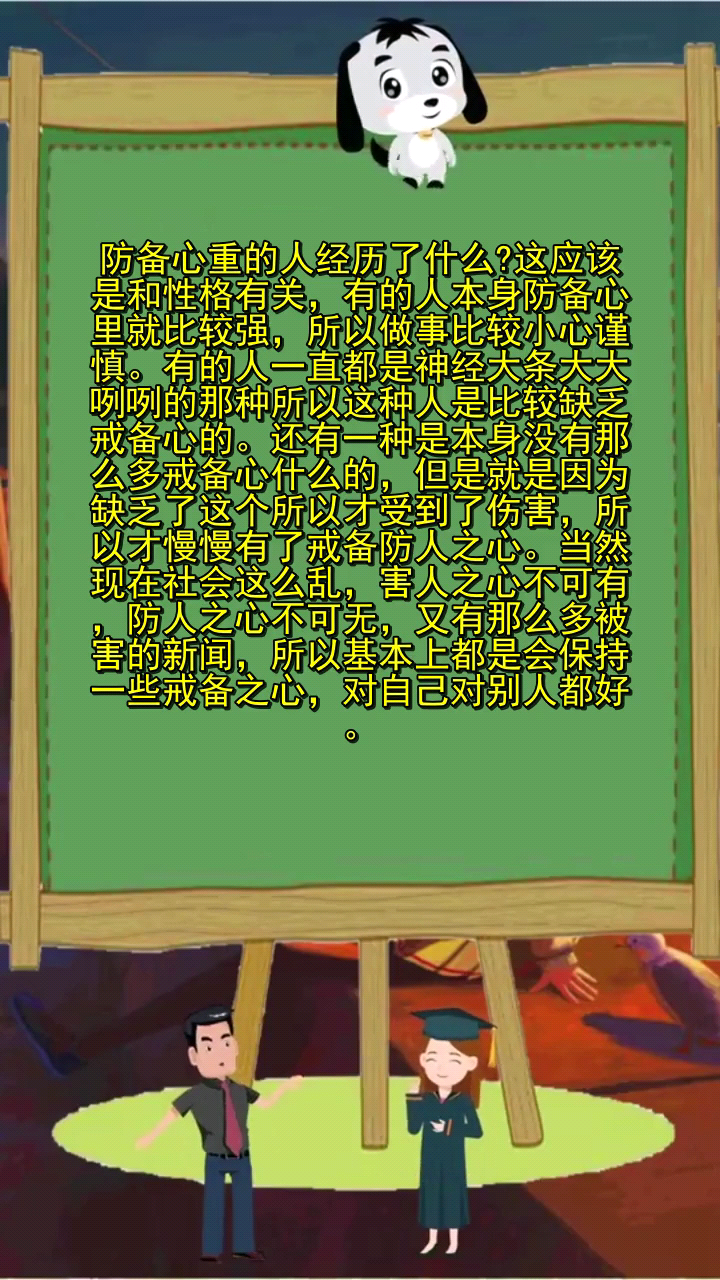 防备心重的人经历了什么?这应该
是和性格有关，有的人本身防备心
里就比较强，所以做事比较小心谨
慎。有的人一直都是神经大条大大
咧咧的那种所以这种人是比较缺乏
戒备心的。还有一种是本身没有那
么多戒备心什么的，但是就是因为
缺乏了这个所以才受到了伤害，所
以才慢慢有了戒备防人之心。当然
现在社会这么乱，害人之心不可有
，防人之心不可无，又有那么多被
害的新闻，所以基本上都是会保持
一些戒备之心，对自己对别人都好
。